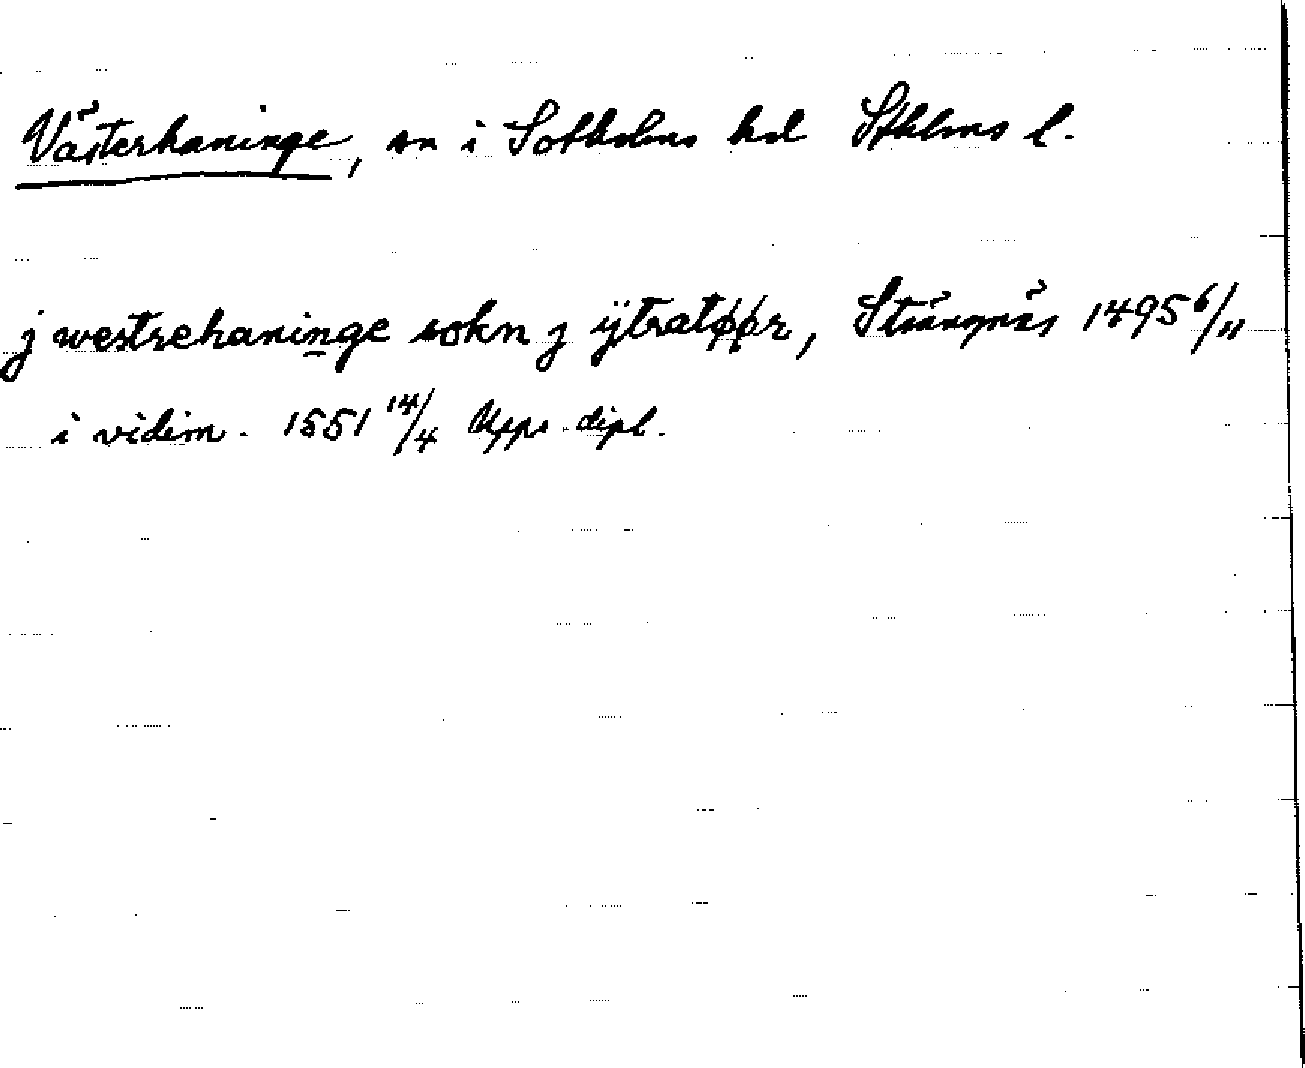 Västerhaninge, sn i Sotholms hd Sthlms l.
j westrehaninge sokn j ÿtratøør, Strängnäs 1495 6/11
i vidim. 1551 14/4 Upps. dipl.